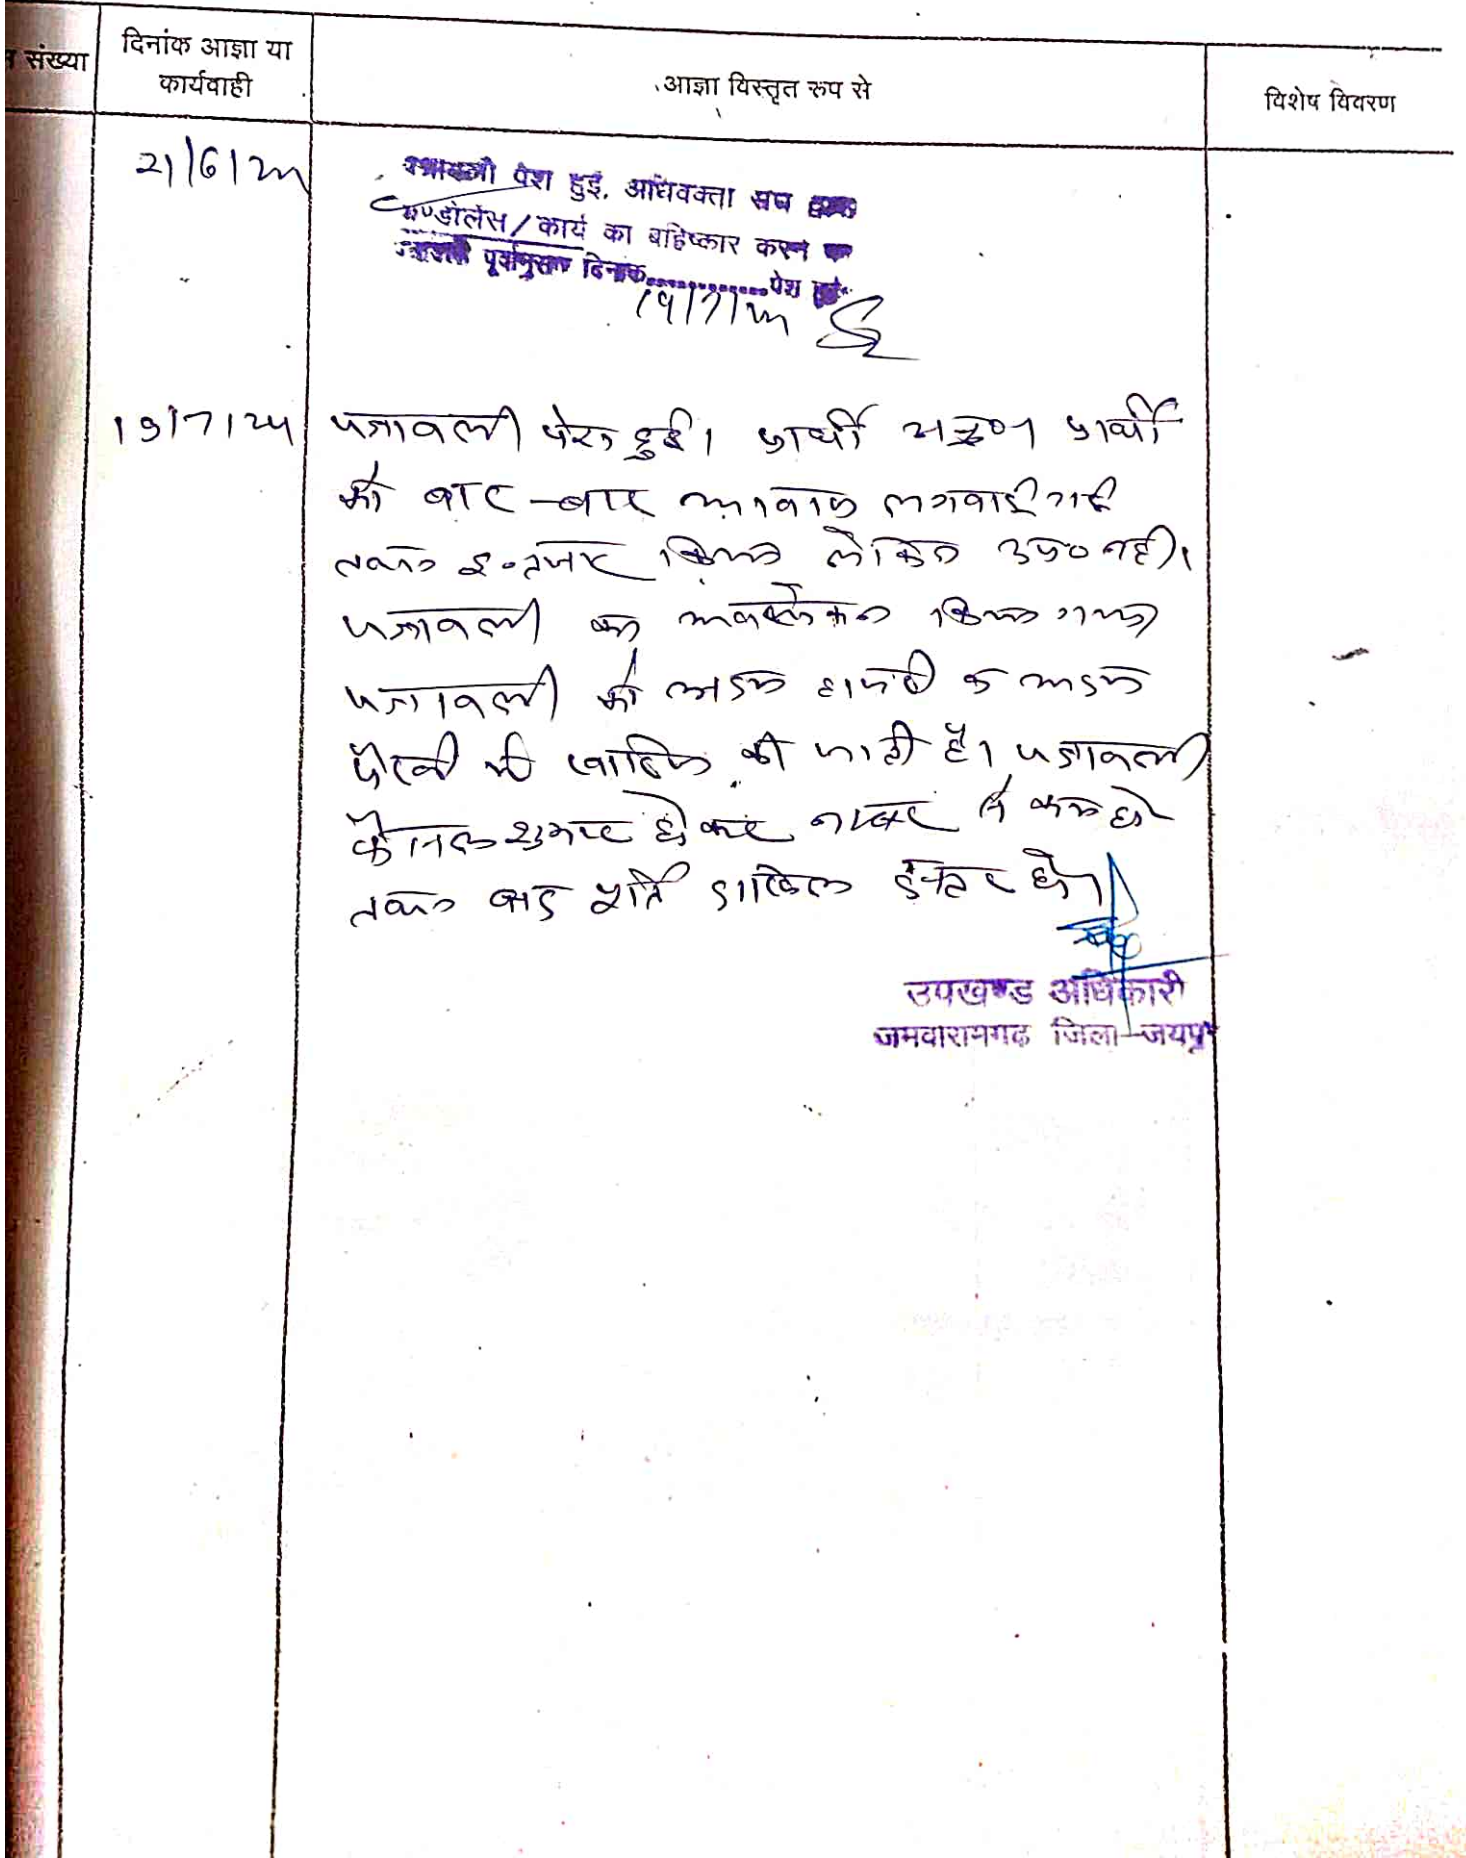 संख्या
दिनांक आज्ञा या
कार्यवाही
आज्ञा विस्तृत रूप से
विशेष विवरण
21/6/24
पत्रावली पेश हुई. अधिवक्ता संघ
कण्डोलेंस/कार्य का बहिष्कार करने
पूर्वानुसार दिनांक............पेश
19/7/24
19/7/24 पत्रावली पेश हुई। प्रार्थी प्रार्थी
को बार-बार आवाज लगवाई गई
तथा इन्तजार किया लेकिन उप० नही।
पत्रावली का अवलोकन किया गया
पत्रावली को अदम हाजरी व अदम
पैरवी में खारिज की जाती है। पत्रावली
फैसल शुमार होकर नम्बर से कम हो
तथा बाद पूर्ति दाखिल दफ्तर हो।
उपखण्ड अधिकारी
जमवारामगढ जिला-जयपुर